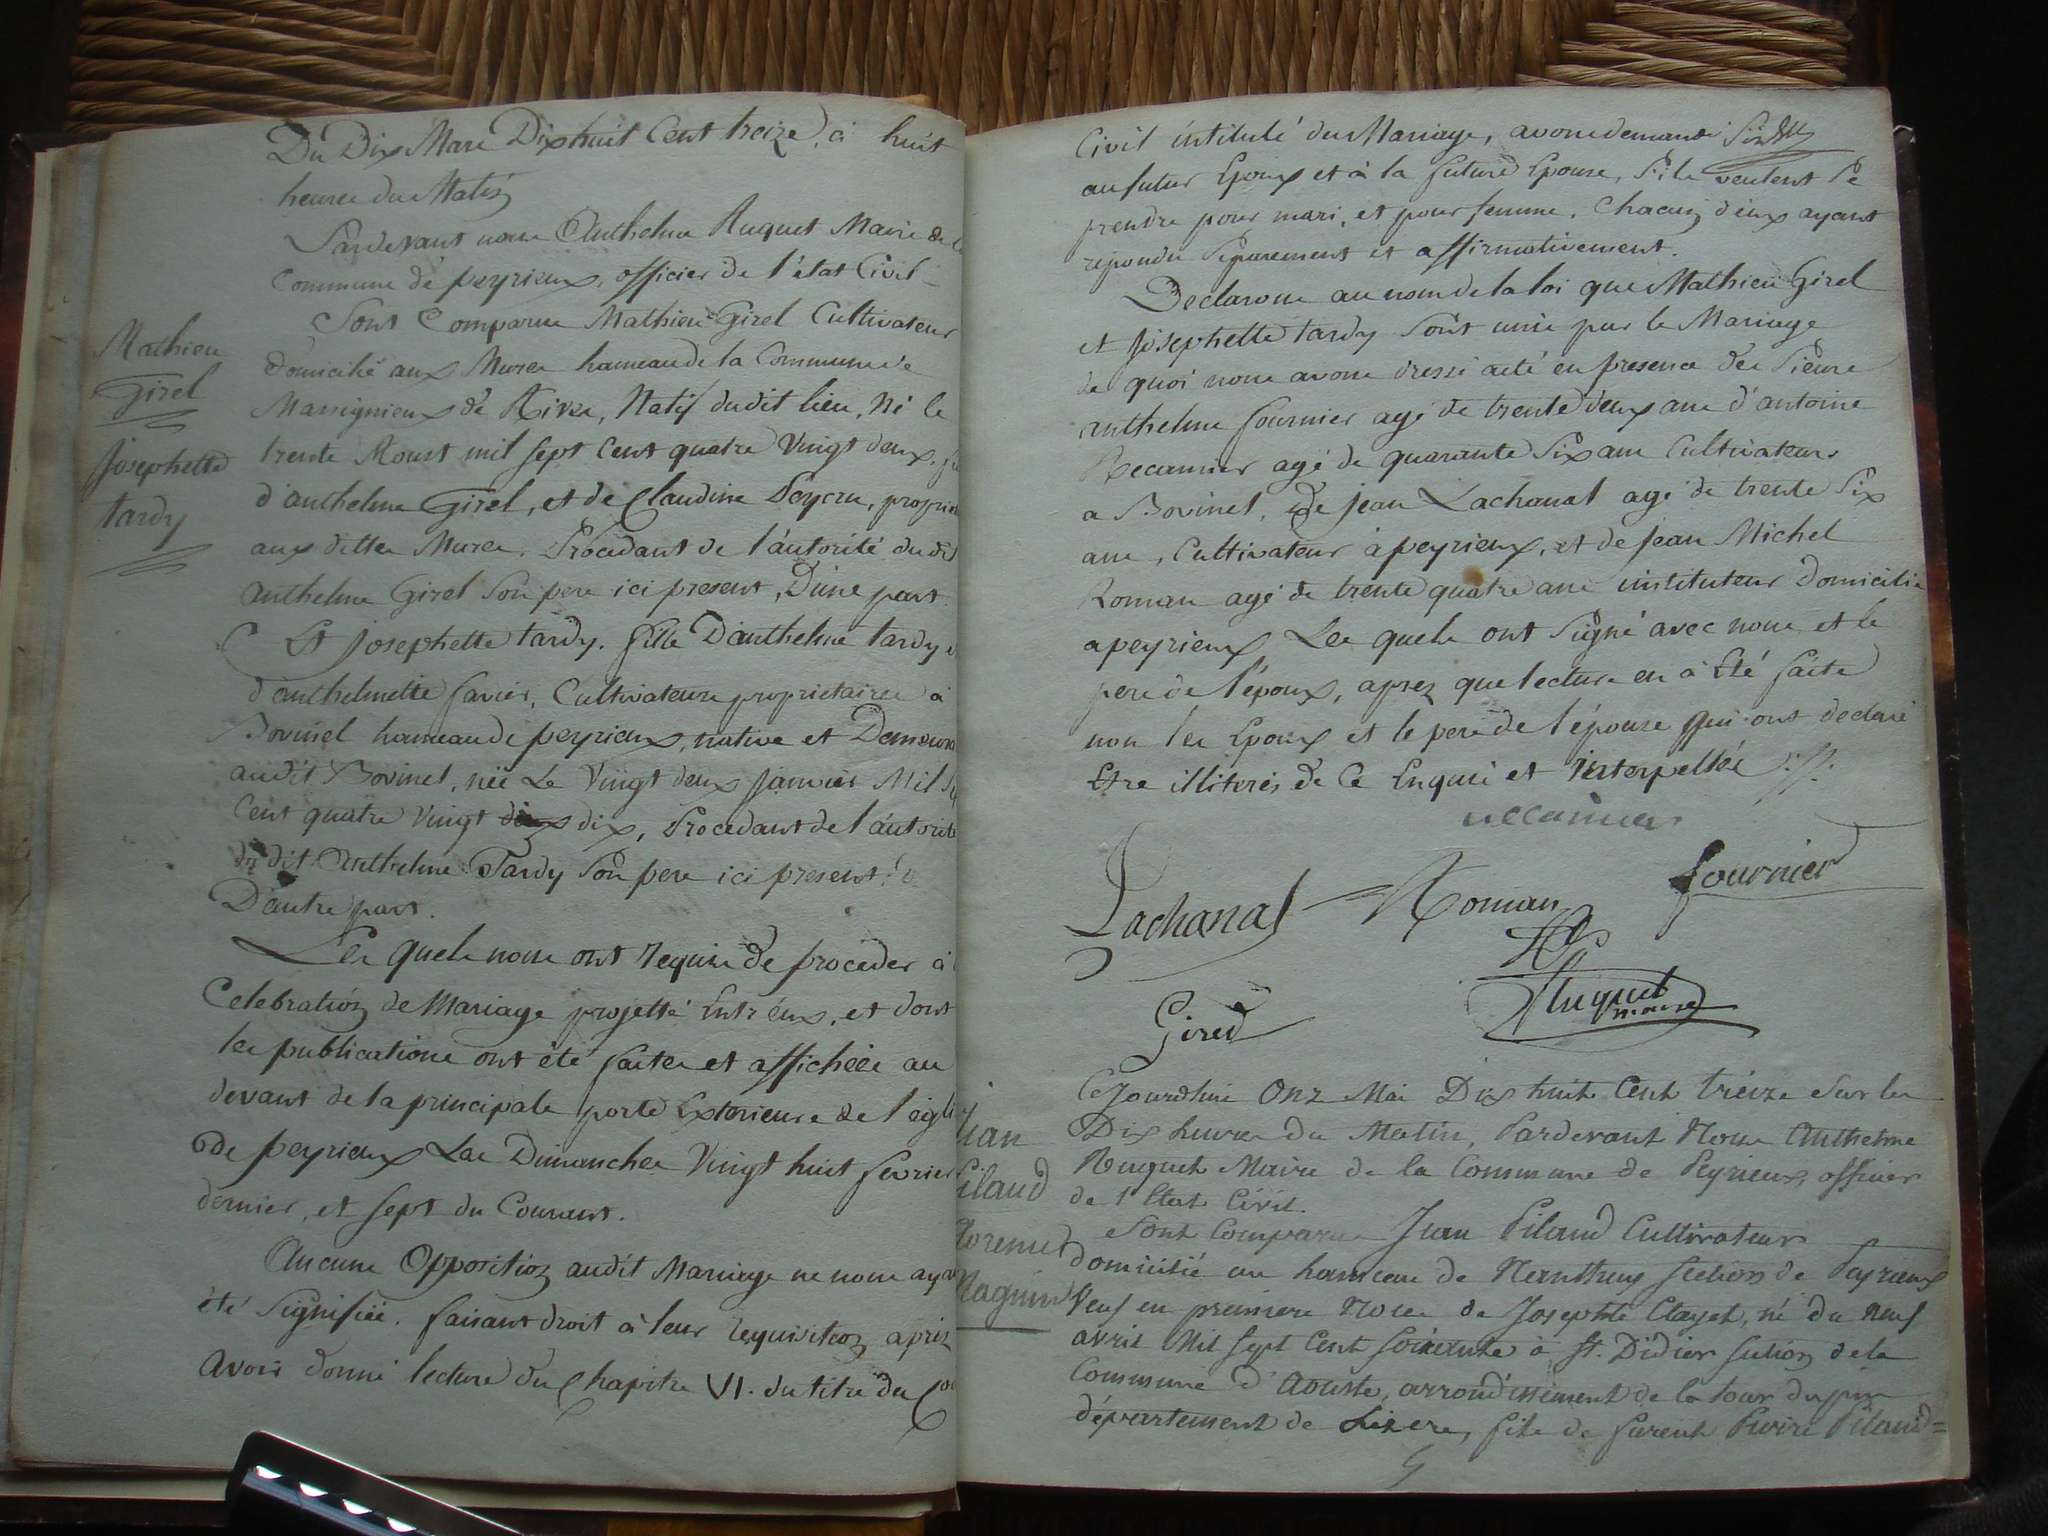 Du Dix Mars Dix huit Cent treize, à huit
heures du Matin
Pardevant nous Anthelme Ruquet Maire de la
Commune de peyrieux, officier de l'état Civil
Sont Comparus Mathieu Girel Cultivateur
domicilié aux Mures hameau de la Commune de
Massignieux de Rives, Natif dudit lieu, Né le
trente Aoust mil sept Cent quatre Vingt deux, fils
d'anthelme Girel, et de Claudine Peycru, propriet
aux dittes Mures. Procedant de l'autorité dudit
anthelme Girel Son pere ici present, D'une part.
Et Josephette tardy. fille D'anthelme tardy e
d'anthelmette favier, Cultivateurs proprietaires à
Bovinel hameau de peyrieux, native et Demeura
audit Bovinel, née Le Vingt deux Janvier Mil Sep
Cent quatre Vingt dix, Procedant de l'autorité
du dit Anthelme Tardy Son pere ici present.
D'autre part.
Les quels nous ont requis de proceder à
Celebration de Mariage projetté Entr'eux, et dont
les publications ont été faites et affichées au
devant de la principale porte Exterieure de l'égli
de peyrieux Les Dimanches Vingt huit fevrier
dernier, et sept du Courant.
Aucune Opposition audit Mariage ne nous aya
été Signifiée. faisant droit à leur requisition après
avoir donné lecture du Chapitre VI. du titre du Co
Mathieu
Girel
Josephette
tardy
Civil intitulé du Mariage, avons demandé
au futur Epoux et à la future Epouse, S'ils veulent Se
prendre pour mari, et pour femme. Chacun d'eux ayant
repondu Separement et affirmativement.
Declarons au nom de la loi que Mathieu Girel
et Josephette tardy Sont unis par le Mariage
de quoi nous avons dressé acte en presence des Sieurs
anthelme fournier agé de trente deux ans d'antoine
Recamier agé de quarante Six ans Cultivateurs
a Bovinel, de Jean Lachanal agé de trente Six
ans, Cultivateur à peyrieux, et de Jean Michel
Roman agé de trente quatre ans instituteur domicilié
a peyrieux Les quels ont Signé avec nous et le
pere de l'époux, après que lecture en à Eté faite
non les Epoux et le pere de l'épouse qui ont declaré
Etre illiterés de Ce Enquis et Interpellés
Lachanal Roman fournier
Girel Ruquet maire
Cejourdhui Onz Mai Dix huit Cent treize Sur les
Dix heures du Matin, Pardevant Nous Anthelme
Ruquet Maire de la Commune de Peyrieux, officier
de l'Etat Civil.
Sont Comparus Jean Pilaud Cultivateur
domicilié au hameau de section de Peyrieux
Veuf en premiere Noces de Josephte Clayet, né du neuf
avril Mil Sept Cent Soixante à St. Didier section de la
Commune d'Aouste, arrondissement de la tour dupin
département de Lisere, fils de furent Pierre Pilaud=
Jean
Pilaud